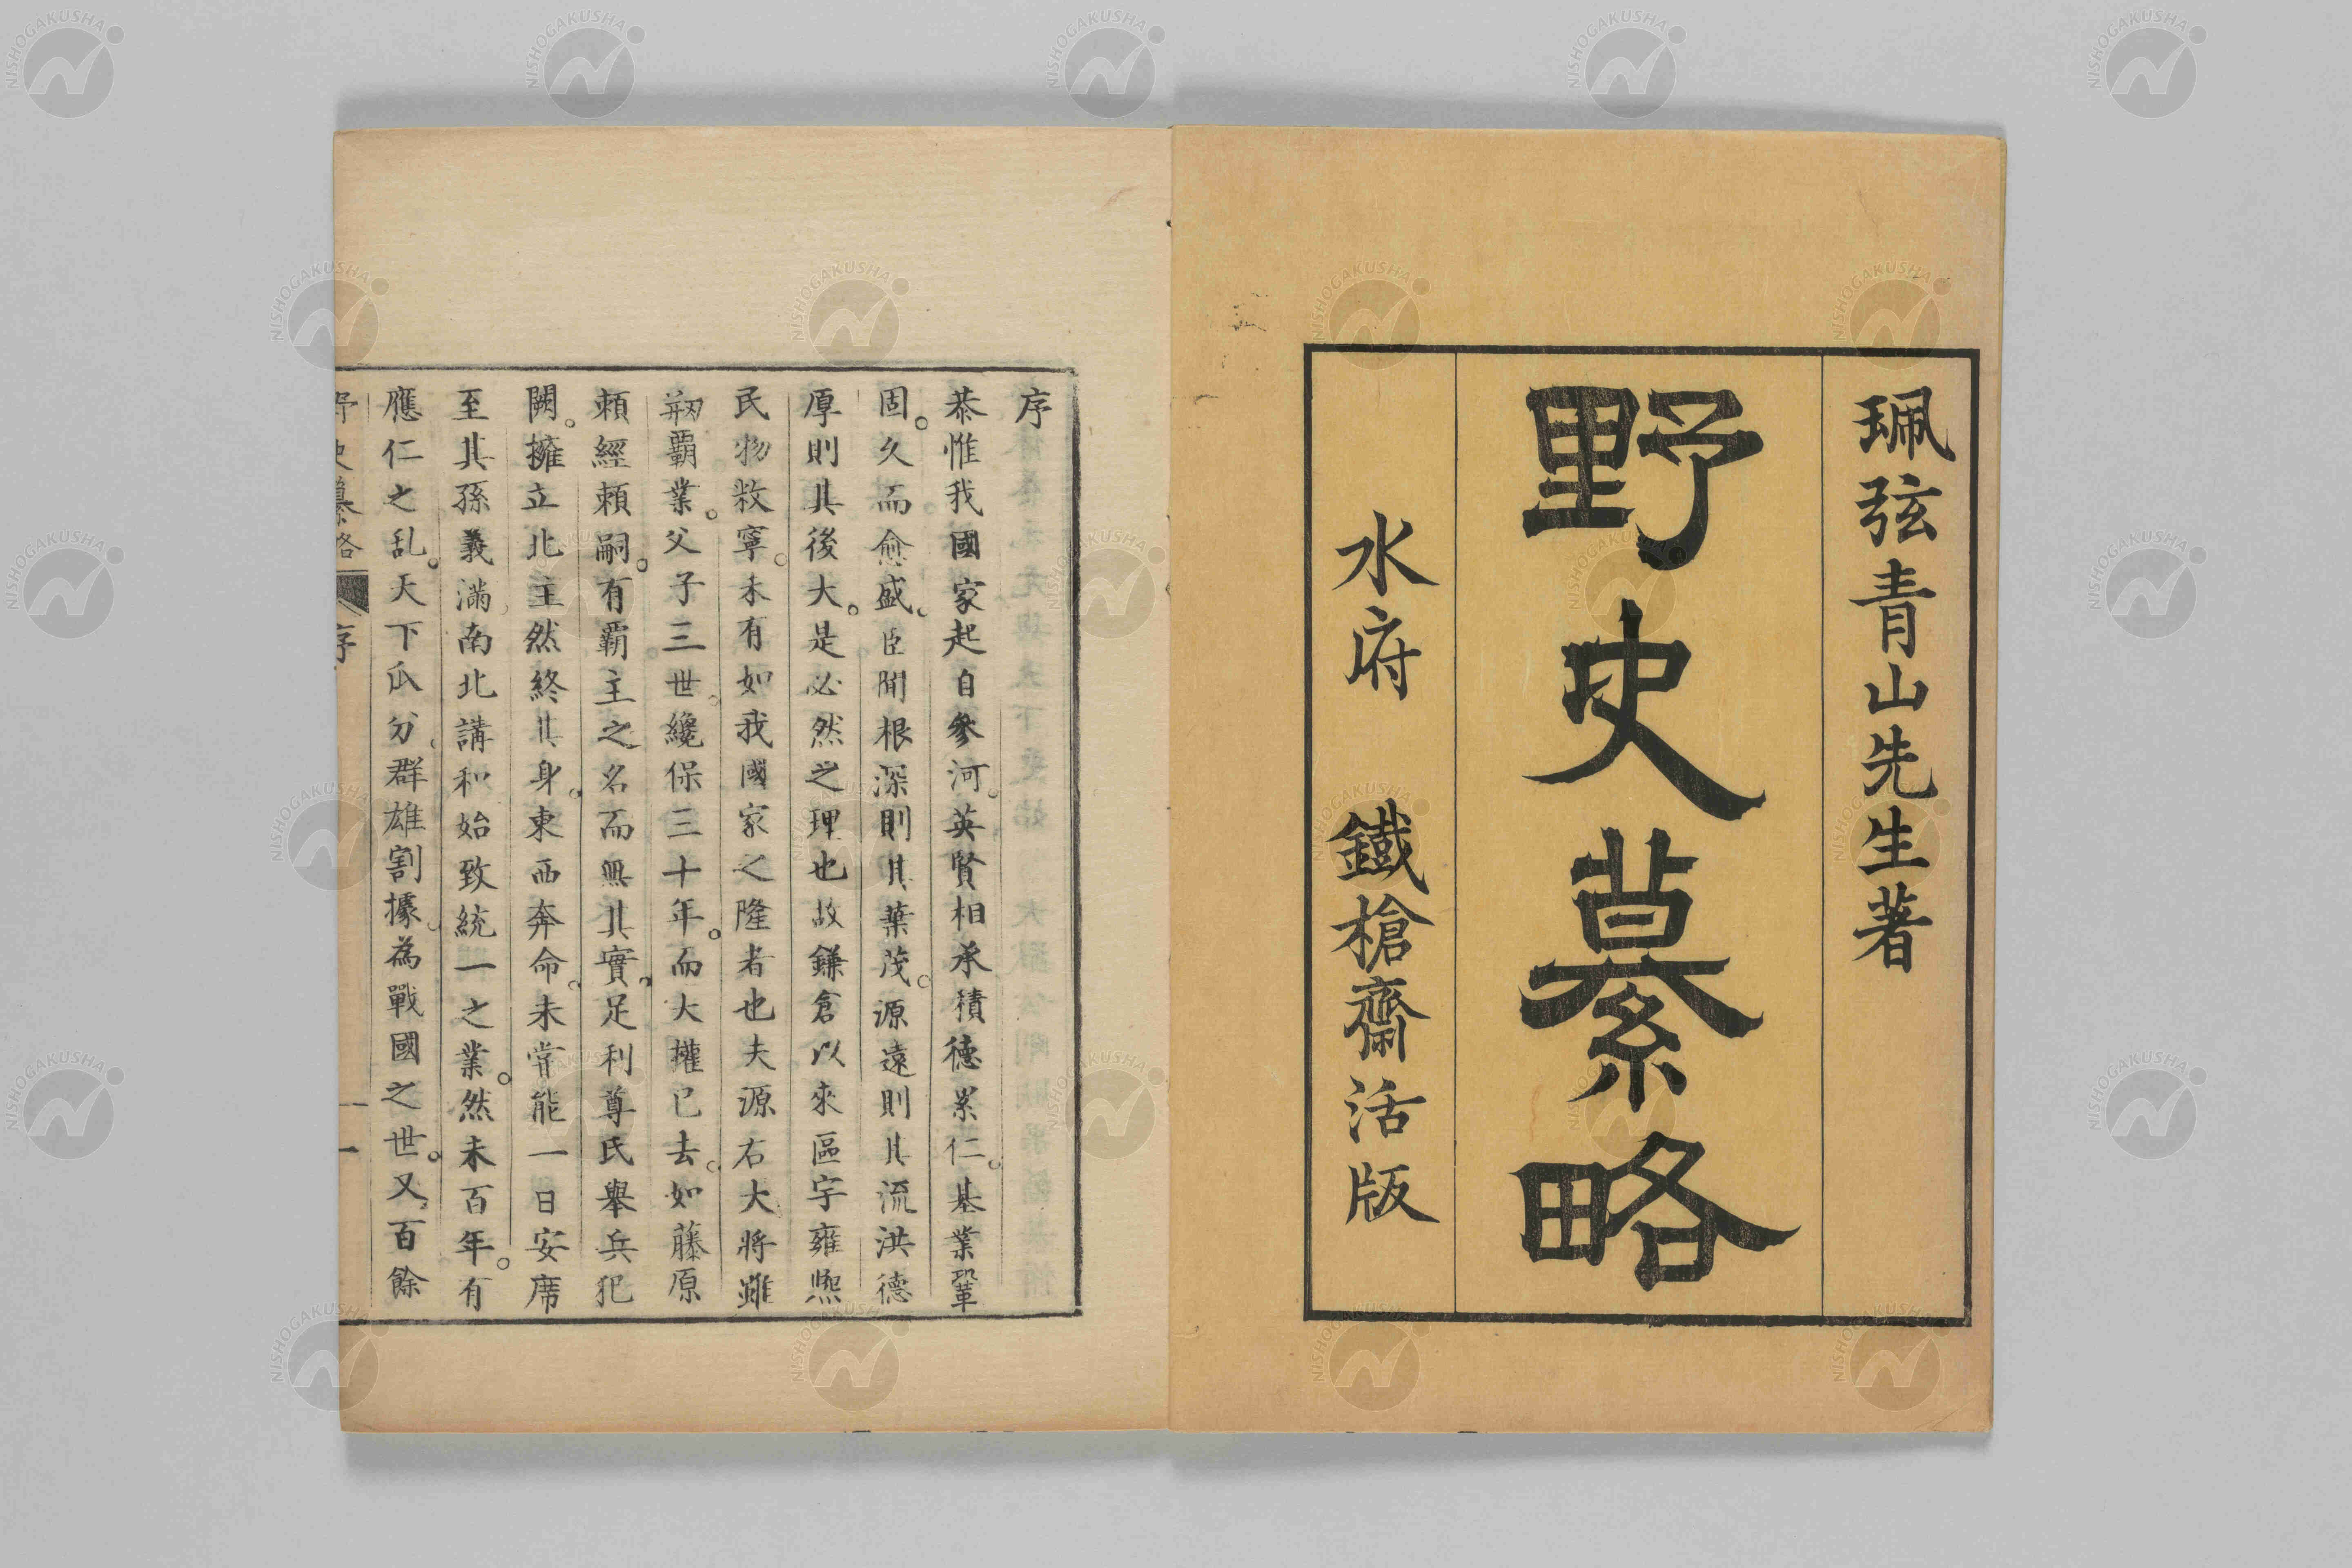 珮弦青山先生著
野史纂略
水府 鐵槍齋活版
序
恭惟我國家起自參河。英賢相承積德累仁。基業鞏
固。久而愈盛。臣聞根深則其葉茂。源遠則其流洪德
厚則其後大。是必然之理也故鎌倉以來區宇雍熈
民物敉寧。未有如我國家之隆者也夫源右大將雖
剏覇業。父子三世。纔保三十年。而大權已去。如藤原
頼經頼嗣。有覇主之名而無其實。足利尊氏舉兵犯
闕。擁立北主然終其身。東西奔命。未甞能一日安席
至其孫義滿。南北講和始致統一之業。然未百年。有
應仁之乱。天下瓜分。群雄割據。為戰國之世。又百餘
野史纂略 序 一
NISHOGAKUSHA